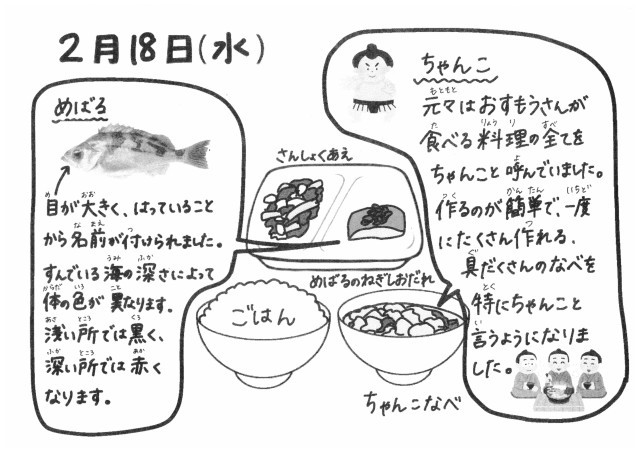 2月18日(水)
めばる
目が大きく、はっていること
から名前が付けられました。
すんでいる海の深さによって
体の色が異なります。
浅い所では黒く、
深い所では赤く
なります。
さんしょくあえ
めばるのねぎしおだれ
ごはん
ちゃんこなべ
ちゃんこ
元々はおすもうさんが
食べる料理の全てを
ちゃんこと呼んでいました。
作るのが簡単で、一度
にたくさん作れる、
具だくさんのなべを
特にちゃんこと
言うようになりま
した。